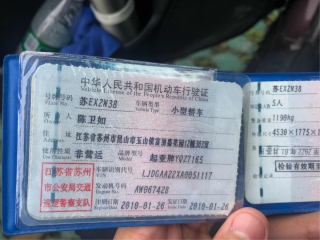 中华人民共和国机动车行驶证
Vehicle License of the People's Republic of China
号牌号码 苏EX2N38 车辆类型 小型轿车
Plate No. Vehicle Type
所有人 陈卫如
Owner
住址 江苏省苏州市昆山市玉山镇
Address
使用性质 非营运 品牌型号 起亚牌YQZ7165
Use Character Model
江苏省苏州
市公安局交通
巡逻警察支队
车辆识别代号 LJDGAA22XA0051117
VIN
发动机号码 AW067428
Engine No.
注册日期 2010-01-26 发证日期 2010-01-26
Register Date Issue Date
号牌号码 苏EX2N38
5人
1190kg
4538×1775×
检验有效期至